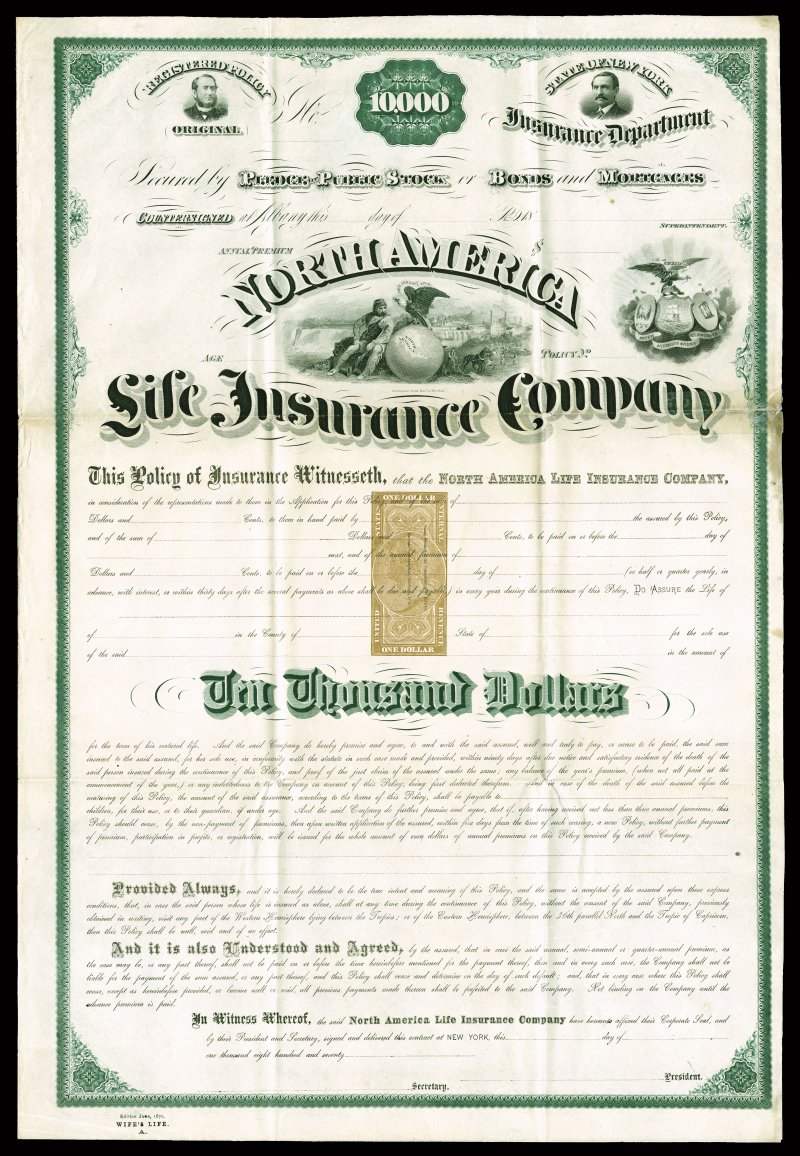 REGISTERED POLICY
ORIGINAL
No.
10.000
STATE OF NEW YORK
Insurance Department
Secured by PLEDGE OF PUBLIC STOCK or BONDS and MORTGAGES
COUNTERSIGNED at Albany this day of A.D. 18
SUPERINTENDENT.
ANNUAL PREMIUM
NORTH AMERICA
AGE
POLICY No
Life Insurance Company
This Policy of Insurance Witnesseth, that the NORTH AMERICA LIFE INSURANCE COMPANY,
in consideration of the representations made to them in the Application for this Policy of
Dollars and Cents, to them in hand paid by the assured by this Policy,
and of the sum of Dollars and Cents, to be paid on or before the day of
next, and of the annual premium of
Dollars and Cents, to be paid on or before the day of (or half or quarter yearly, in
advance, with interest, or within thirty days after the several payments as above shall be due and payable) in every year during the continuance of this Policy, DO ASSURE the Life of
of in the County of State of for the sole use
of the said in the amount of
ONE DOLLAR
UNITED STATES
INTERNAL REVENUE
ONE DOLLAR
Ten Thousand Dollars
for the term of his natural life. And the said Company do hereby promise and agree, to and with the said assured, well and truly to pay, or cause to be paid, the said sum
insured to the said assured, for her sole use, in conformity with the statute in such case made and provided, within ninety days after due notice and satisfactory evidence of the death of the
said person insured during the continuance of this Policy, and proof of the just claim of the assured under the same; any balance of the year's premium, (when not all paid at the
commencement of the year,) or any indebtedness to the Company on account of this Policy, being first deducted therefrom. And in case of the death of the said assured before the
maturing of this Policy, the amount of the said assurance, according to the terms of this Policy, shall be payable to
children, for their use, or to their guardian, if under age. And the said Company do further promise and agree, that if, after having received not less than three annual premiums, this
Policy should cease, by the non-payment of premiums, then upon written application of the assured, within five days from the time of such ceasing, a new Policy, without further payment
of premium, participation in profits, or registration, will be issued for the whole amount of even dollars of annual premiums on this Policy received by the said Company.
Provided Always, and it is hereby declared to be the true intent and meaning of this Policy, and the same is accepted by the assured upon these express
conditions, that, in case the said person whose life is insured as above, shall at any time during the continuance of this Policy, without the consent of the said Company, previously
obtained in writing, visit any part of the Western Hemisphere lying between the Tropics; or of the Eastern Hemisphere, between the 36th parallel North and the Tropic of Capricorn,
then this Policy shall be null, void and of no effect.
And it is also Understood and Agreed, by the assured, that in case the said annual, semi-annual or quarter-annual premium, as
the case may be, or any part thereof, shall not be paid on or before the time hereinbefore mentioned for the payment thereof, then and in every such case, the Company shall not be
liable for the payment of the sum assured, or any part thereof, and this Policy shall cease and determine on the day of such default; and, that in every case where this Policy shall
cease, except as hereinbefore provided, or become null or void, all previous payments made thereon shall be forfeited to the said Company. Not binding on the Company until the
advance premium is paid.
In Witness Whereof, the said North America Life Insurance Company have hereunto affixed their Corporate Seal, and
by their President and Secretary, signed and delivered this contract at NEW YORK, this day of
one thousand eight hundred and seventy
President.
Secretary.
Edition June, 1871.
WIFE'S LIFE.
A.